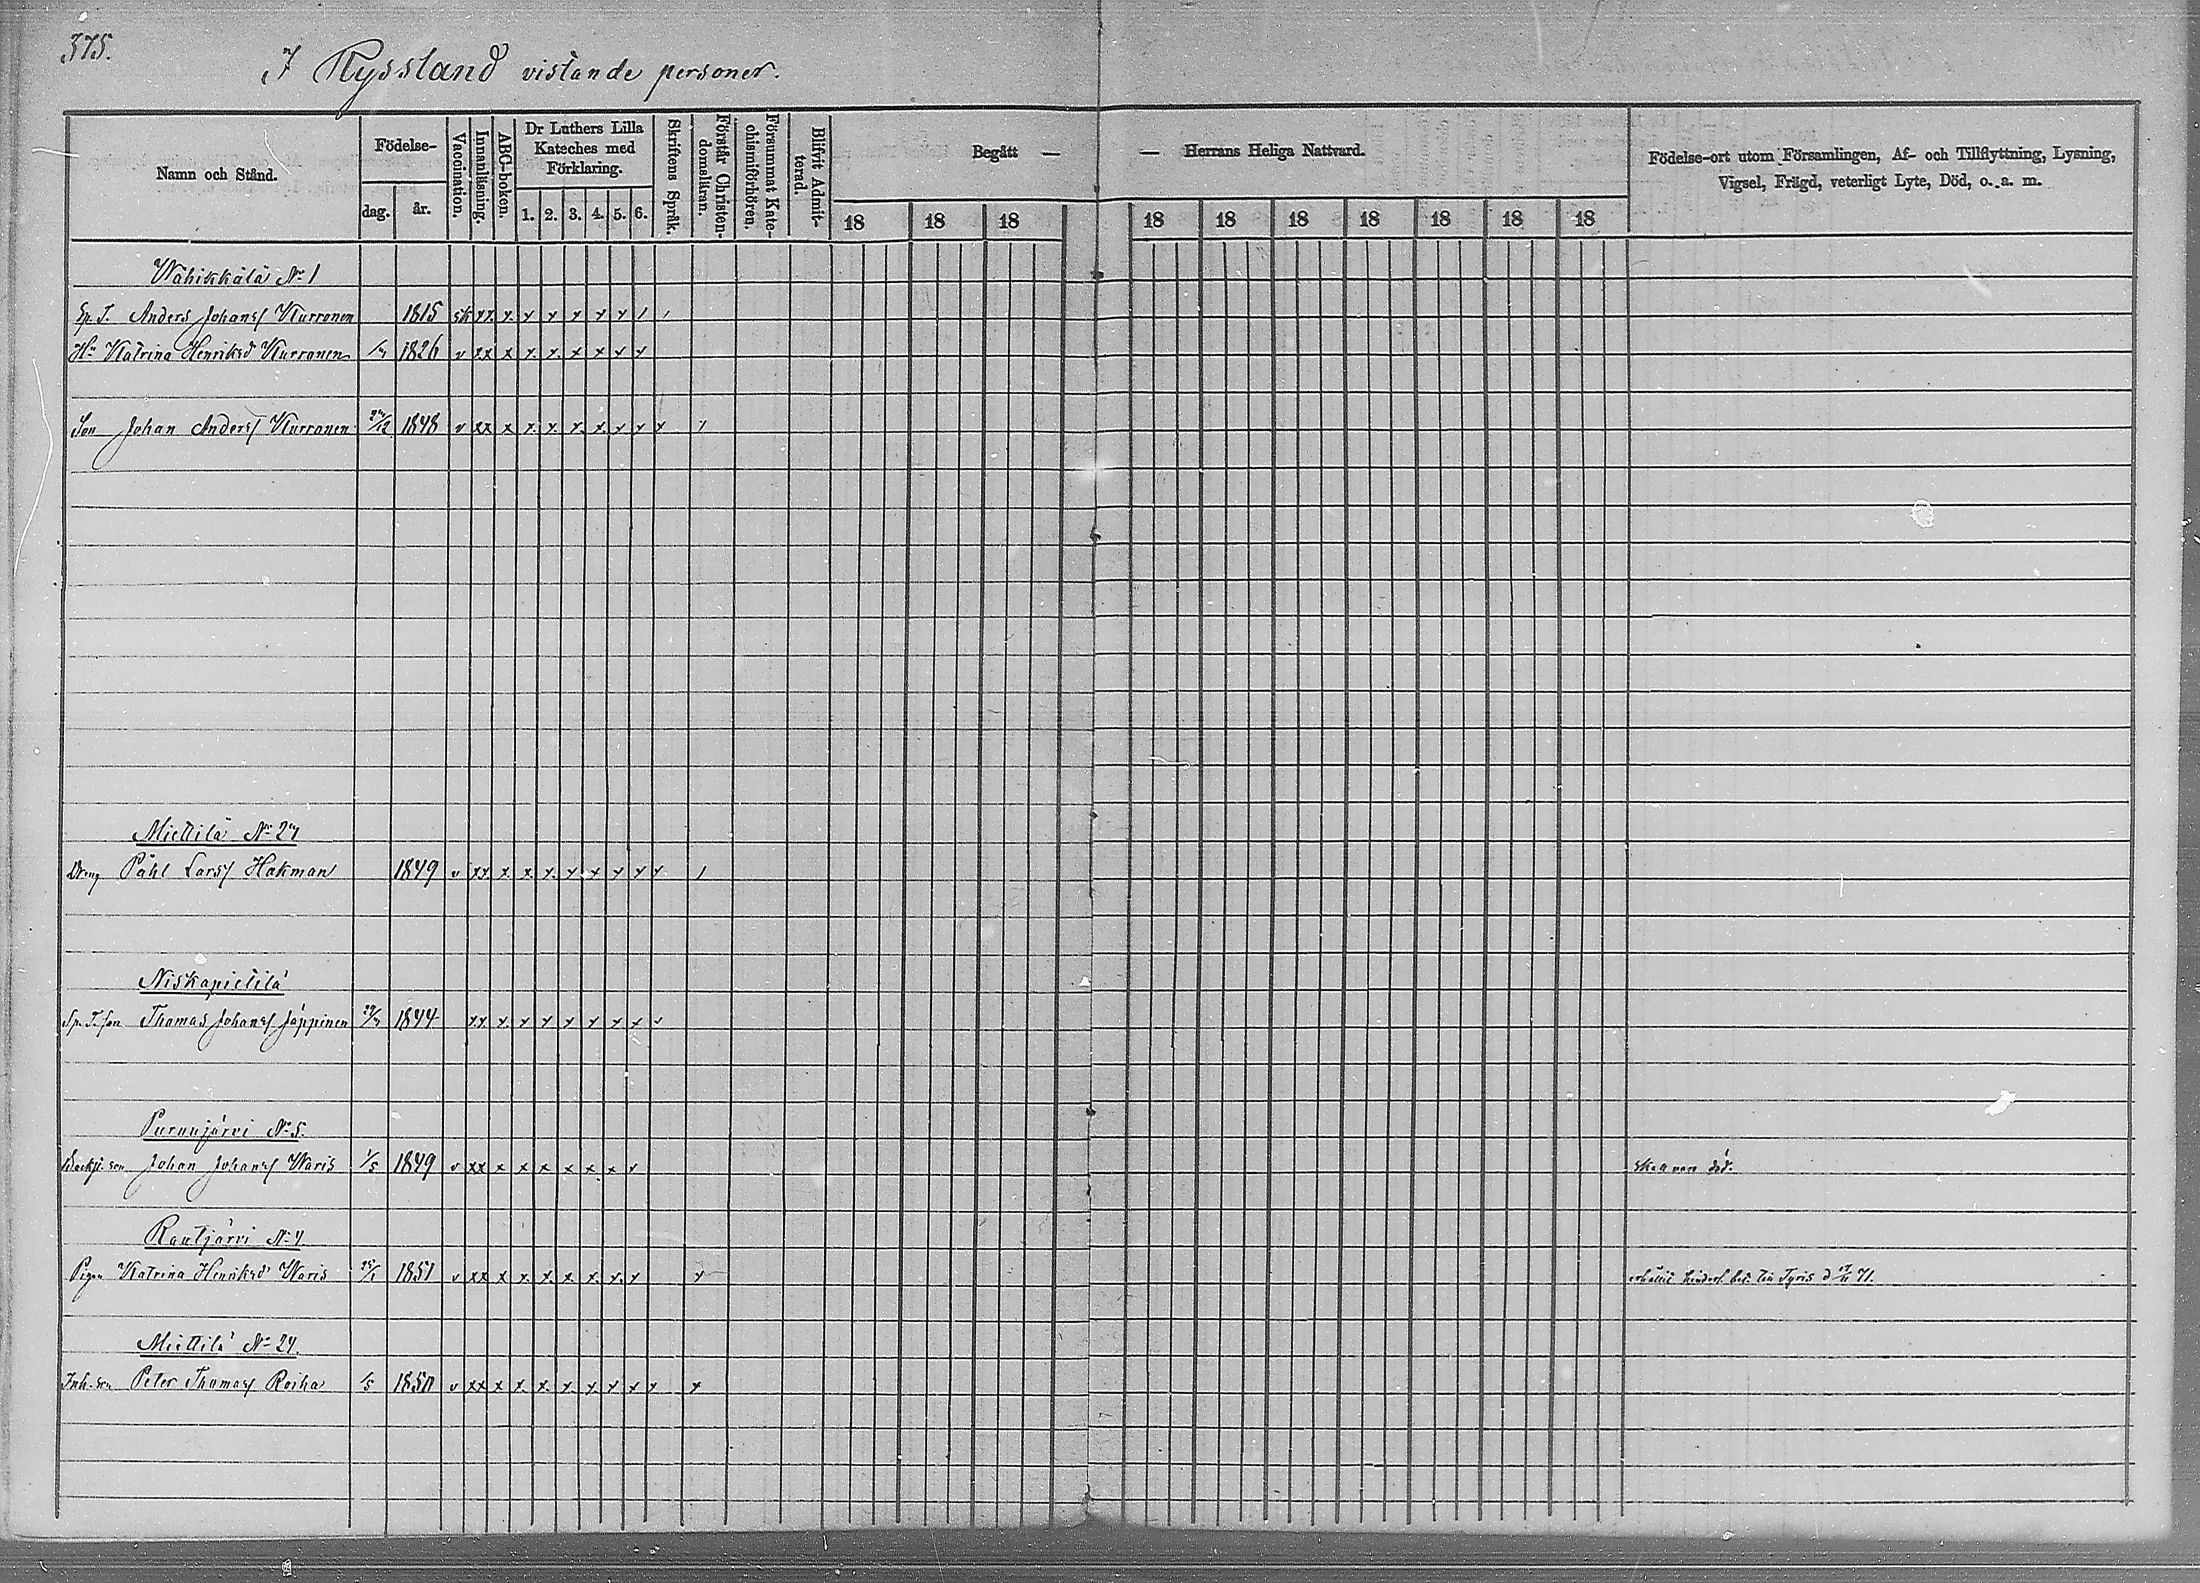 375.
I Ryssland vistande personer.
Namn och Stånd.
Födelse-
dag.
år.
Vaccination.
Innanläsning.
ABC-boken.
Dr Luthers Lilla
Kateches med
Förklaring.
1. 2. 3. 4. 5. 6.
Skriftens Språk.
Förstår Christen-
domsläran.
Försummat Kate-
chismiförhören.
Blifvit Admit-
terad.
Begått —
— Herrans Heliga Nattvard.
18 18 18 18 18 18 18 18 18 18
Födelse-ort utom Församlingen, Af- och Tillflyttning, Lysning,
Vigsel, Frägd, veterligt Lyte, Död, o. a. m.
Wähikkälä No 1
Sp. T. Anders Johansf Kurronen 1815 sk xx x x x x x x / /
Hu Katrina Henriksd Kurronen 1826 v xx x x x x x x x
Son Johan Andersf Kurronen 1848 v xx x x x x x x x x /
Miettilä No 27
Dreng Påhl Larsf Hakman 1849 v xx x x x x x x x x /
Niskapietilä
Sp. T. son Thomas Johansf Jäppinen 1844 xx x x x x x x x x
Purnujärvi No 5.
Backst. son Johan Johansf Waris 1/5 1849 v xx x x x x x x x
skall vara död.
Rautjärvi No 4
Pigan Katrina Henriksd Waris 25/1 1851 v xx x x x x x x x x
erhållit hinderl. bet. till Tyris d 71.
Miettilä No 24.
Inh. son Peter Thomasf Roiha 1850 v xx x x x x x x x x x